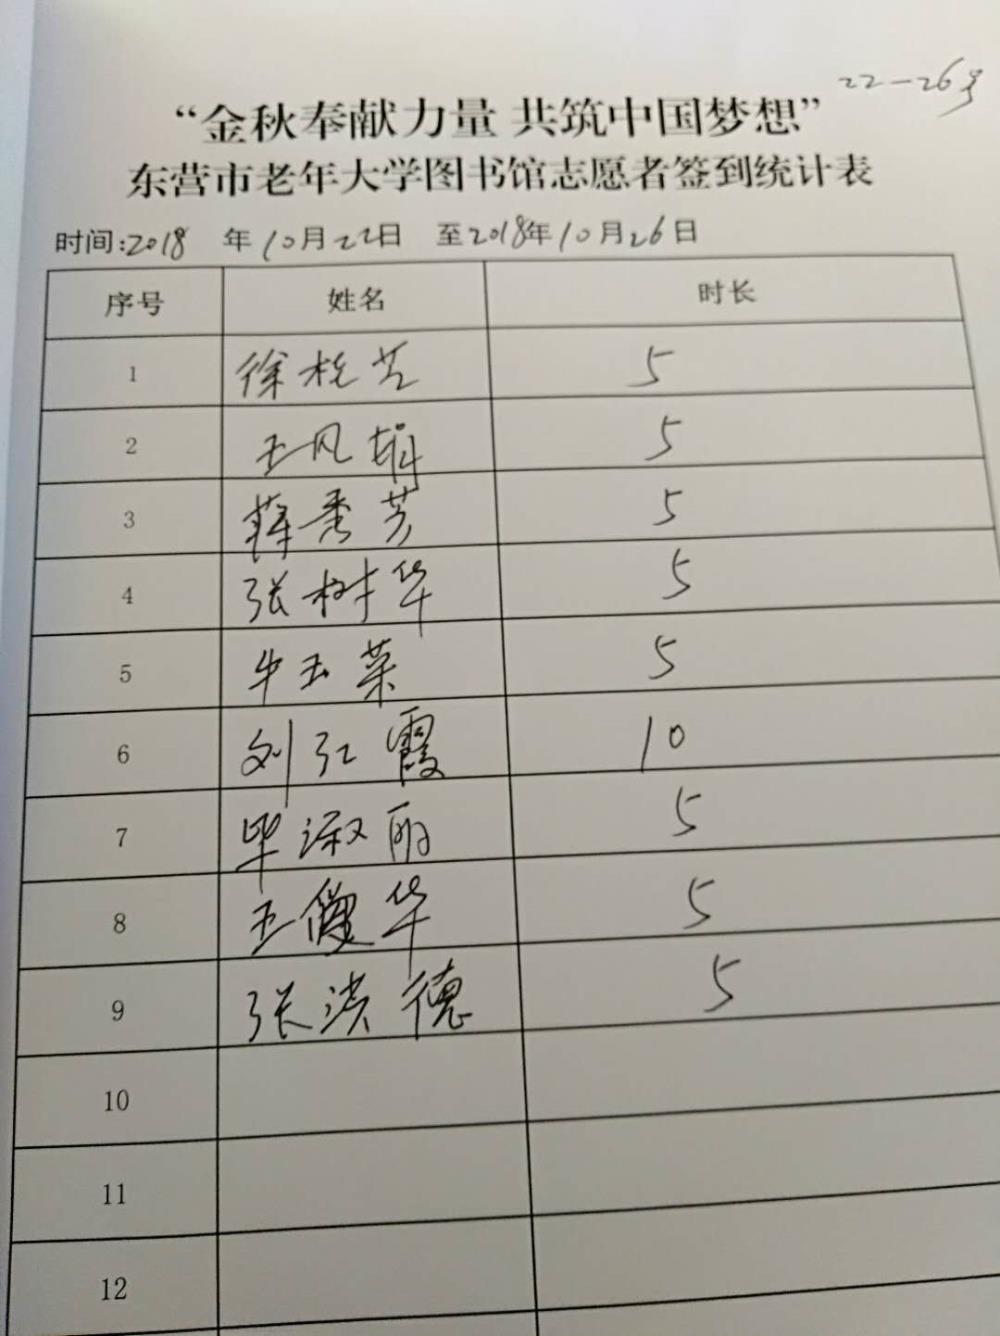 22-26号
“金秋奉献力量 共筑中国梦想”
东营市老年大学图书馆志愿者签到统计表
时间:2018 年10月22日 至2018年10月26日
序号 姓名 时长
1 徐桂芳 5
2 王风娟 5
3 薛秀芳 5
4 张树华 5
5 牛玉荣 5
6 刘红霞 10
7 毕淑丽 5
8 王俊华 5
9 张洪德 5
10
11
12